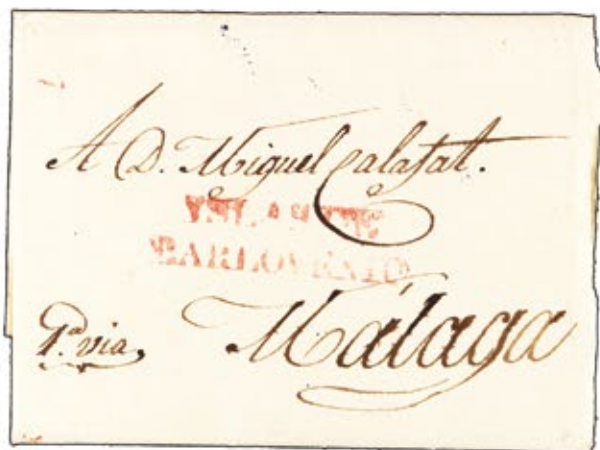 A D. Miguel Calafat.
YSLAS DE
BARLOVENTO
1.ª via,
Málaga